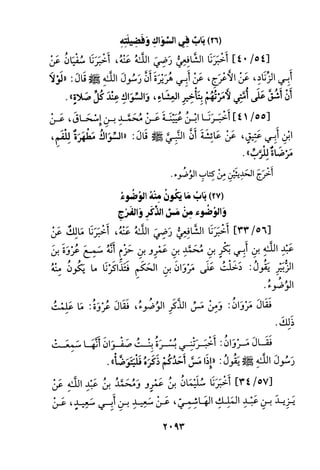 (٢٦) بَابٌ فِي السِّوَاكِ وَفَضِيلَتِهِ
[٤٠/٥٤] أَخْبَرَنَا الشَّافِعِيُّ رَضِيَ اللَّهُ عَنْهُ، أَخْبَرَنَا سُفْيَانُ عَنْ
أَبِي الزِّنَادِ، عَنْ الأَعْرَجِ، عَنْ أَبِي هُرَيْرَةَ أَنَّ رَسُولَ اللَّهِ ﷺ قَالَ: «لَوْلَا
أَنْ أَشُقَّ عَلَى أُمَّتِي لَأَمَرْتُهُمْ بِتَأْخِيرِ العِشَاءِ، وَالسِّوَاكِ عِنْدَ كُلِّ صَلَاةٍ».
[٤١/٥٥] أَخْبَرَنَا ابْنُ عُيَيْنَةَ عَنْ مُحَمَّدِ بنِ إِسْحَاقَ، عَنْ
ابْنِ أَبِي عَتِيقٍ، عَنْ عَائِشَةَ أَنَّ النَّبِيَّ ﷺ قَالَ: «السِّوَاكُ مَطْهَرَةٌ لِلْفَمِ،
مَرْضَاةٌ لِلرَّبِّ».
أَخْرَجَ الحَدِيثَيْنِ مِنْ كِتَابِ الوُضُوءِ.
(٢٧) بَابُ مَا يَكُونُ مِنْهُ الوُضُوءُ
وَالوُضُوءِ مِنْ مَسِّ الذَّكَرِ وَالفَرْجِ
[٣٣/٥٦] أَخْبَرَنَا الشَّافِعِيُّ رَضِيَ اللَّهُ عَنْهُ، أَخْبَرَنَا مَالِكٌ عَنْ
عَبْدِ اللَّهِ بنِ أَبِي بَكْرِ بنِ مُحَمَّدِ بنِ عَمْرِو بنِ حَزْمٍ أَنَّهُ سَمِعَ عُرْوَةَ بنَ
الزُّبَيْرِ يَقُولُ: دَخَلْتُ عَلَى مَرْوَانَ بنِ الحَكَمِ فَتَذَاكَرْنَا مَا يَكُونُ مِنْهُ
الوُضُوءُ.
فَقَالَ مَرْوَانُ: وَمِنْ مَسِّ الذَّكَرِ الوُضُوءُ، فَقَالَ عُرْوَةُ: مَا عَلِمْتُ
ذَلِكَ.
فَقَالَ مَرْوَانُ: أَخْبَرَتْنِي بُسْرَةُ بِنْتُ صَفْوَانَ أَنَّهَا سَمِعَتْ
رَسُولَ اللَّهِ ﷺ يَقُولُ: «إِذَا مَسَّ أَحَدُكُمْ ذَكَرَهُ فَلْيَتَوَضَّأْ».
[٣٤/٥٧] أَخْبَرَنَا سُلَيْمَانُ بنُ عَمْرٍو وَمُحَمَّدُ بنُ عَبْدِ اللَّهِ عَنْ
يَزِيدَ بنِ عَبْدِ المَلِكِ الهَاشِمِيِّ، عَنْ سَعِيدِ بنِ أَبِي سَعِيدٍ، عَنْ
٢٠٩٣